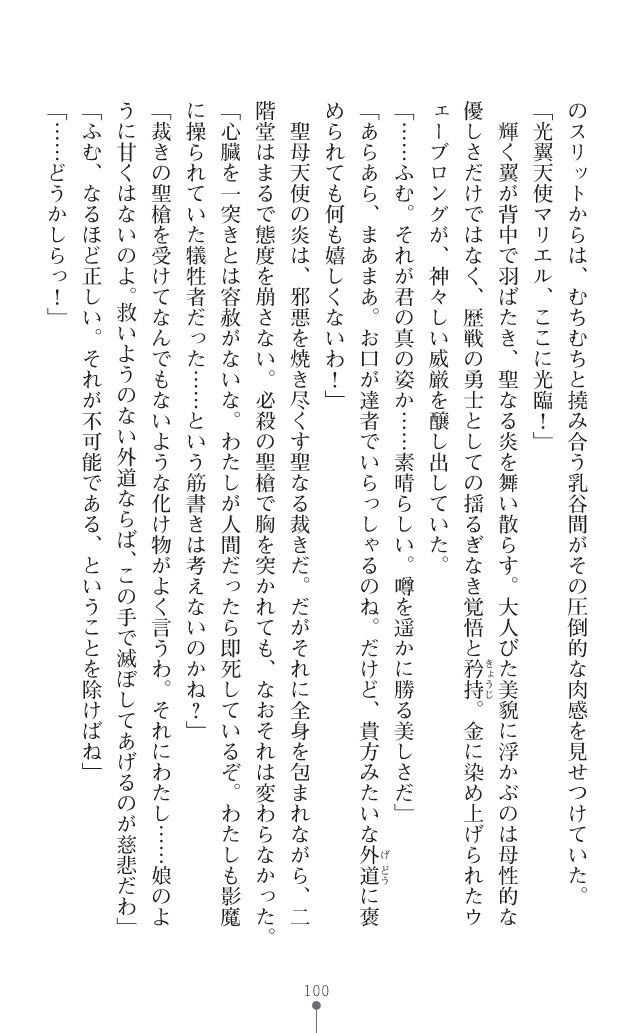 のスリットからは、むちむちと撓み合う乳谷間がその圧倒的な肉感を見せつけていた。
「光翼天使マリエル、ここに光臨！」
　輝く翼が背中で羽ばたき、聖なる炎を舞い散らす。大人びた美貌に浮かぶのは母性的な
優しさだけではなく、歴戦の勇士としての揺るぎなき覚悟と矜持。金に染め上げられたウ
ェーブロングが、神々しい威厳を醸し出していた。
「……ふむ。それが君の真の姿か……素晴らしい。噂を遥かに勝る美しさだ」
「あらあら、まあまあ。お口が達者でいらっしゃるのね。だけど、貴方みたいな外道に褒
められても何も嬉しくないわ！」
　聖母天使の炎は、邪悪を焼き尽くす聖なる裁きだ。だがそれに全身を包まれながら、二
階堂はまるで態度を崩さない。必殺の聖槍で胸を突かれても、なおそれは変わらなかった。
「心臓を一突きとは容赦がないな。わたしが人間だったら即死しているぞ。わたしも影魔
に操られていた犠牲者だった……という筋書きは考えないのかね？」
「裁きの聖槍を受けてなんでもないような化け物がよく言うわ。それにわたし……娘のよ
うに甘くはないのよ。救いようのない外道ならば、この手で滅ぼしてあげるのが慈悲だわ」
「ふむ、なるほど正しい。それが不可能である、ということを除けばね」
「……どうかしらっ！」
きょうじ
げどう
100